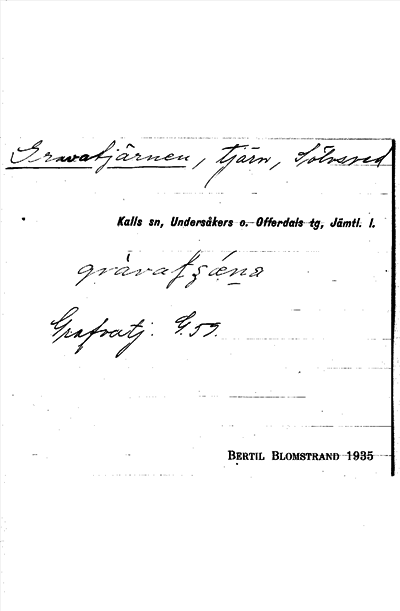 Gravatjärnen, tjärn, Sölvsved
Kalls sn, Undersåkers o. Offerdals tg, Jämtl. l.
gràvatʂǽna
Grafvatj. G.59.
BERTIL BLOMSTRAND 1935